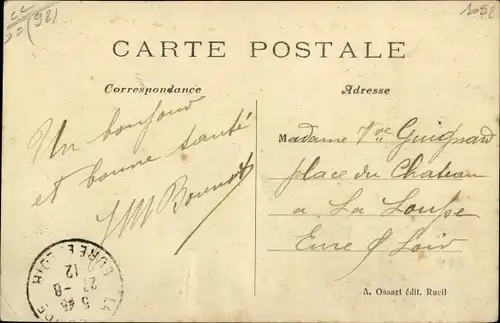 (92)
1052
CARTE POSTALE
Correspondance
Adresse
Un bonjour
et bonne santé
Madame Vve Guignard
place du Chateau
a La Loupe
Eure & Loir
LA LOUPE
5 45
27 -8
12
EURE-ET-LOIR
A. Ossart édit. Rueil